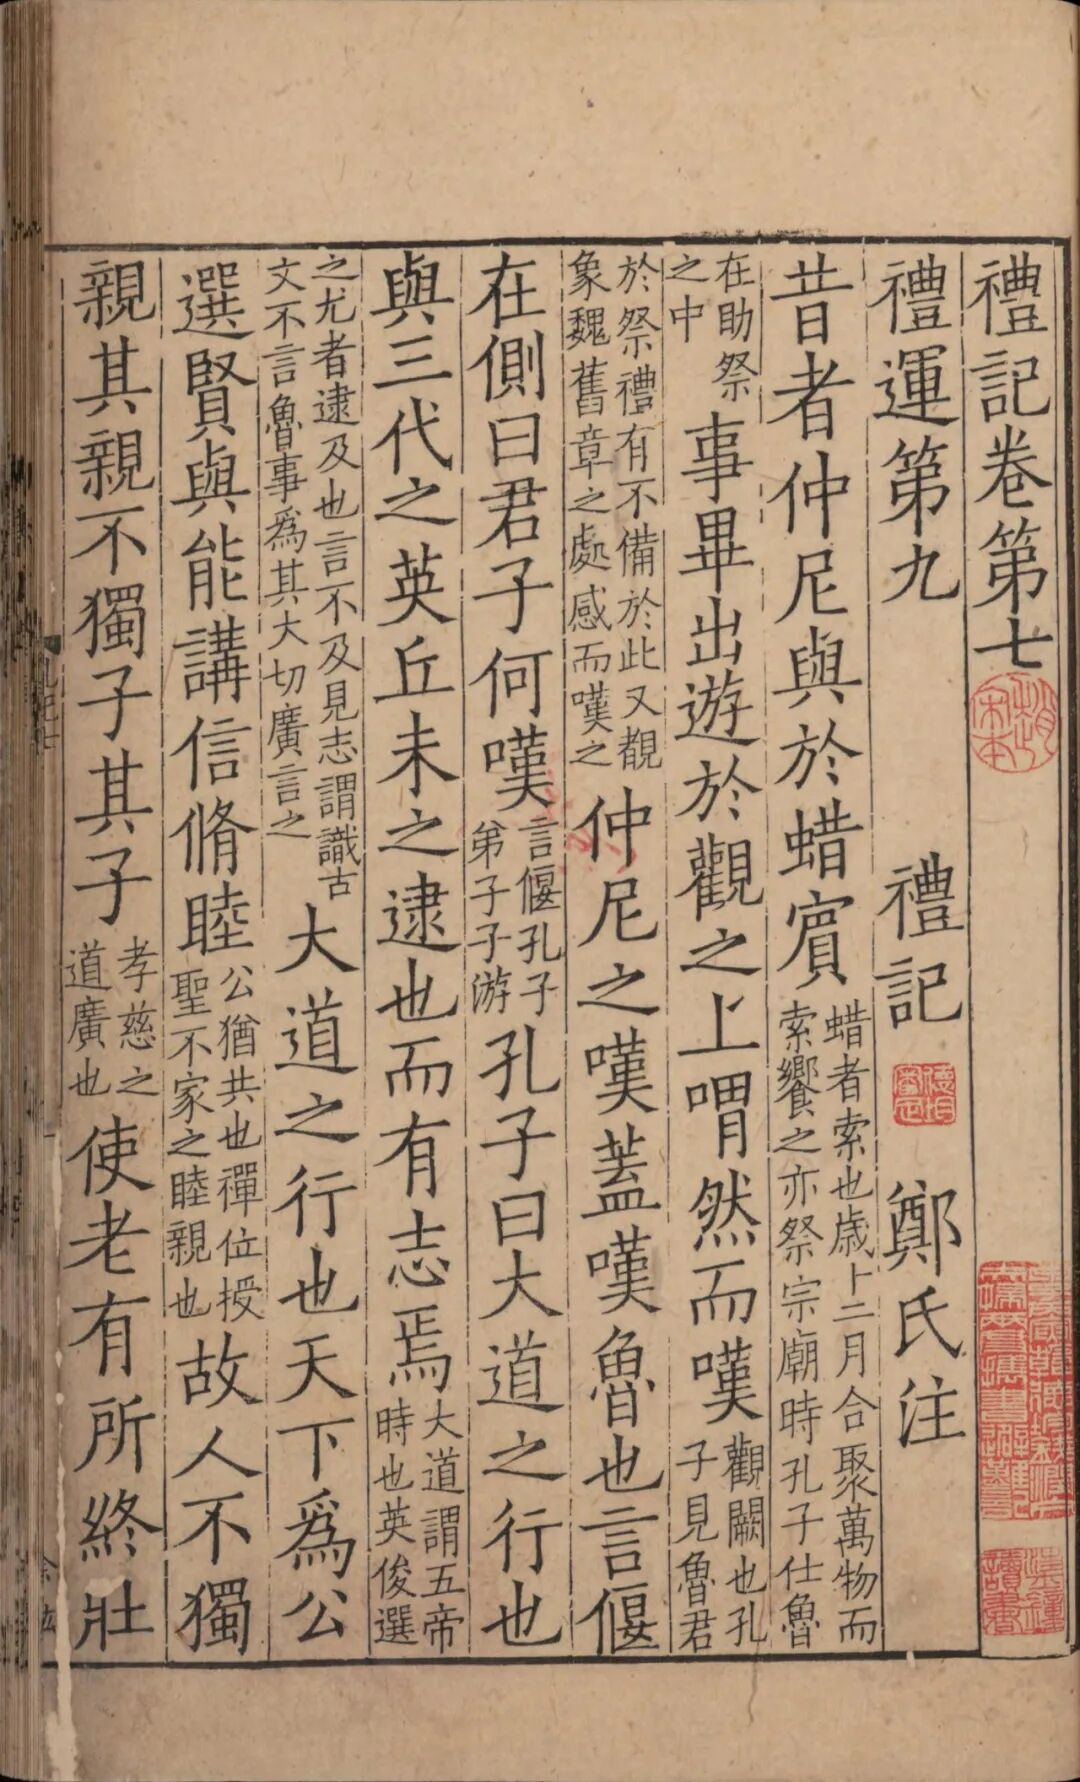 禮記卷第七
禮運第九 禮記 鄭氏注
昔者仲尼與於蜡賓蜡者索也歲十二月合聚萬物而索饗之亦祭宗廟時孔子仕魯
在助祭之中事畢出遊於觀之上喟然而嘆觀闕也孔子見魯君
於祭禮有不備於此又覩象魏舊章之處感而嘆之仲尼之嘆蓋嘆魯也言偃
在側曰君子何嘆言偃孔子弟子子游孔子曰大道之行也
與三代之英丘未之逮也而有志焉大道謂五帝時也英俊選
之尤者逮及也言不及見志謂識古文不言魯事爲其大切廣言之大道之行也天下爲公
選賢與能講信脩睦公猶共也禪位授聖不家之睦親也故人不獨
親其親不獨子其子孝慈之道廣也使老有所終壯
趙
宋本
讀書